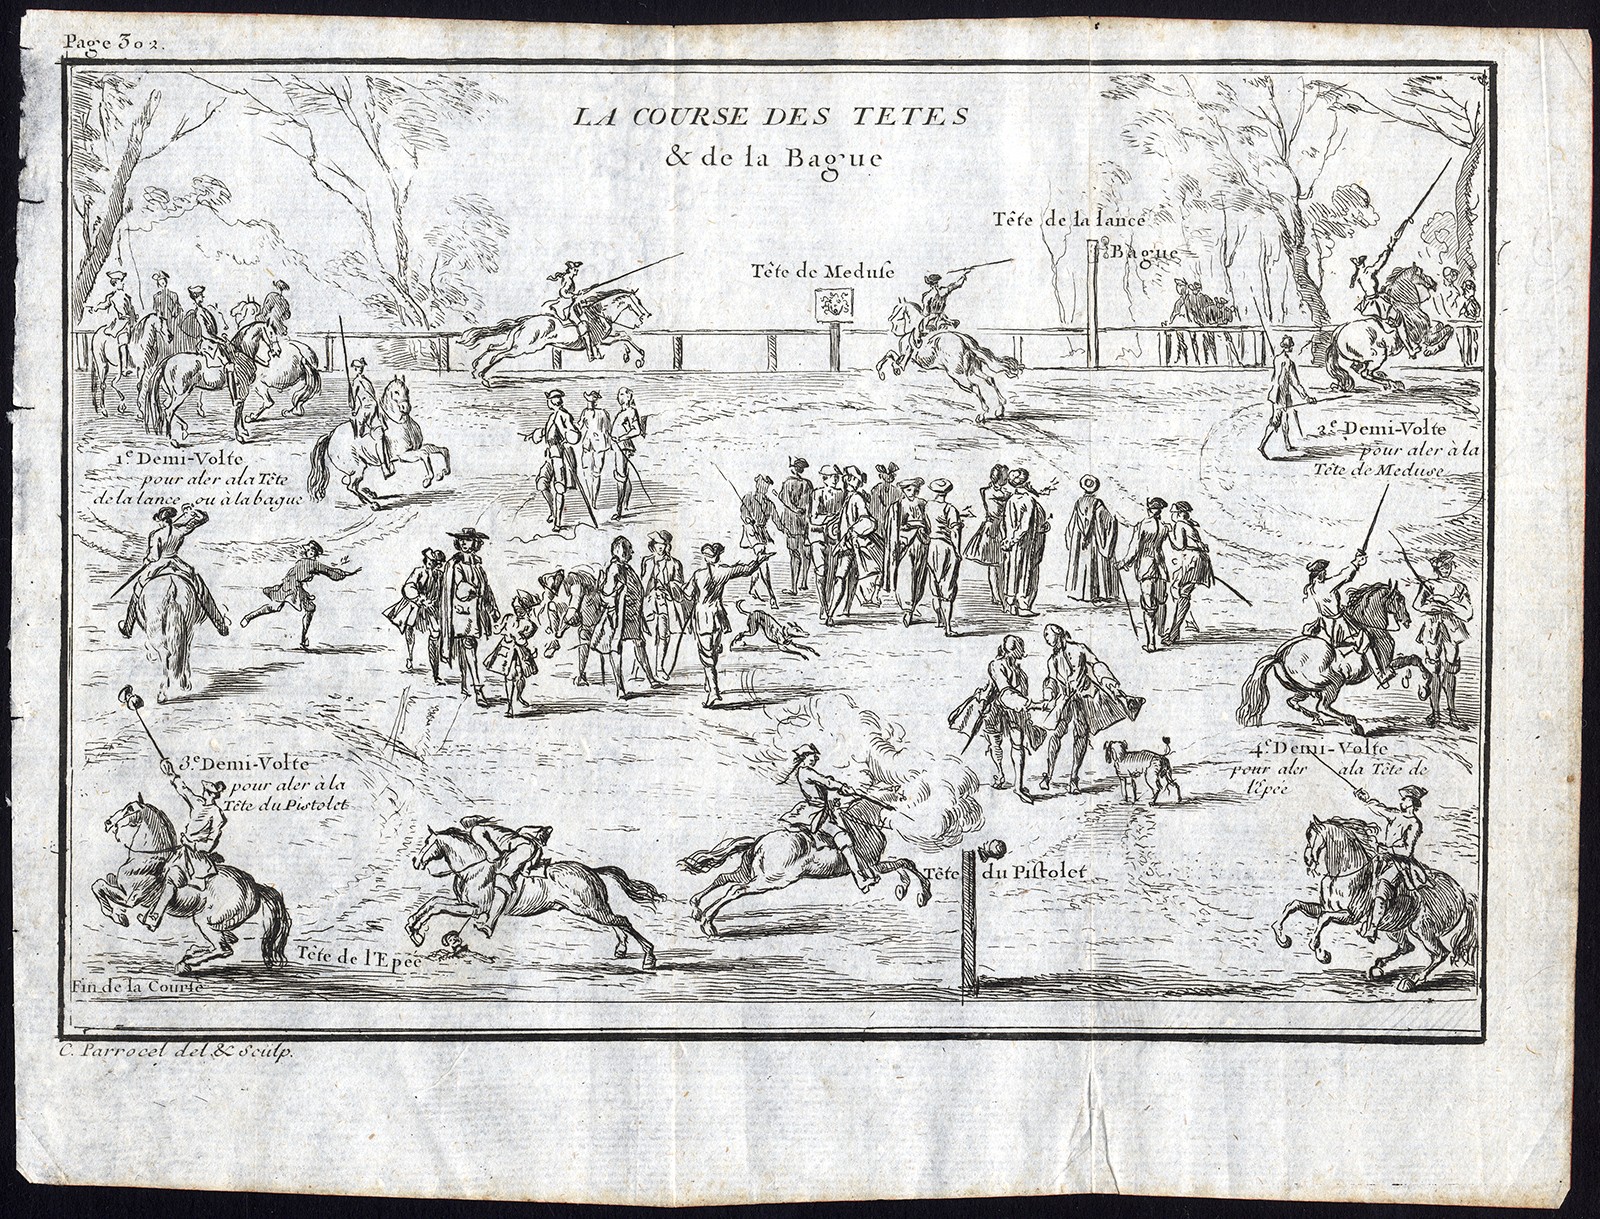 Page 302.
LA COURSE DES TETES
& de la Bague
Tête de la lance
Bague
Tête de Meduse
1.e Demi-Volte
pour aler a la Tête
de la lance ou à la bague
2.e Demi-Volte
pour aler à la
Tête de Meduse
3.e Demi-Volte
pour aler à la
Tête du Pistolet
4.e Demi-Volte
pour aler a la Tête de
l'épée
Tête du Pistolet
Tête de l'Epée
Fin de la Course
C. Parrocel del & Sculp.